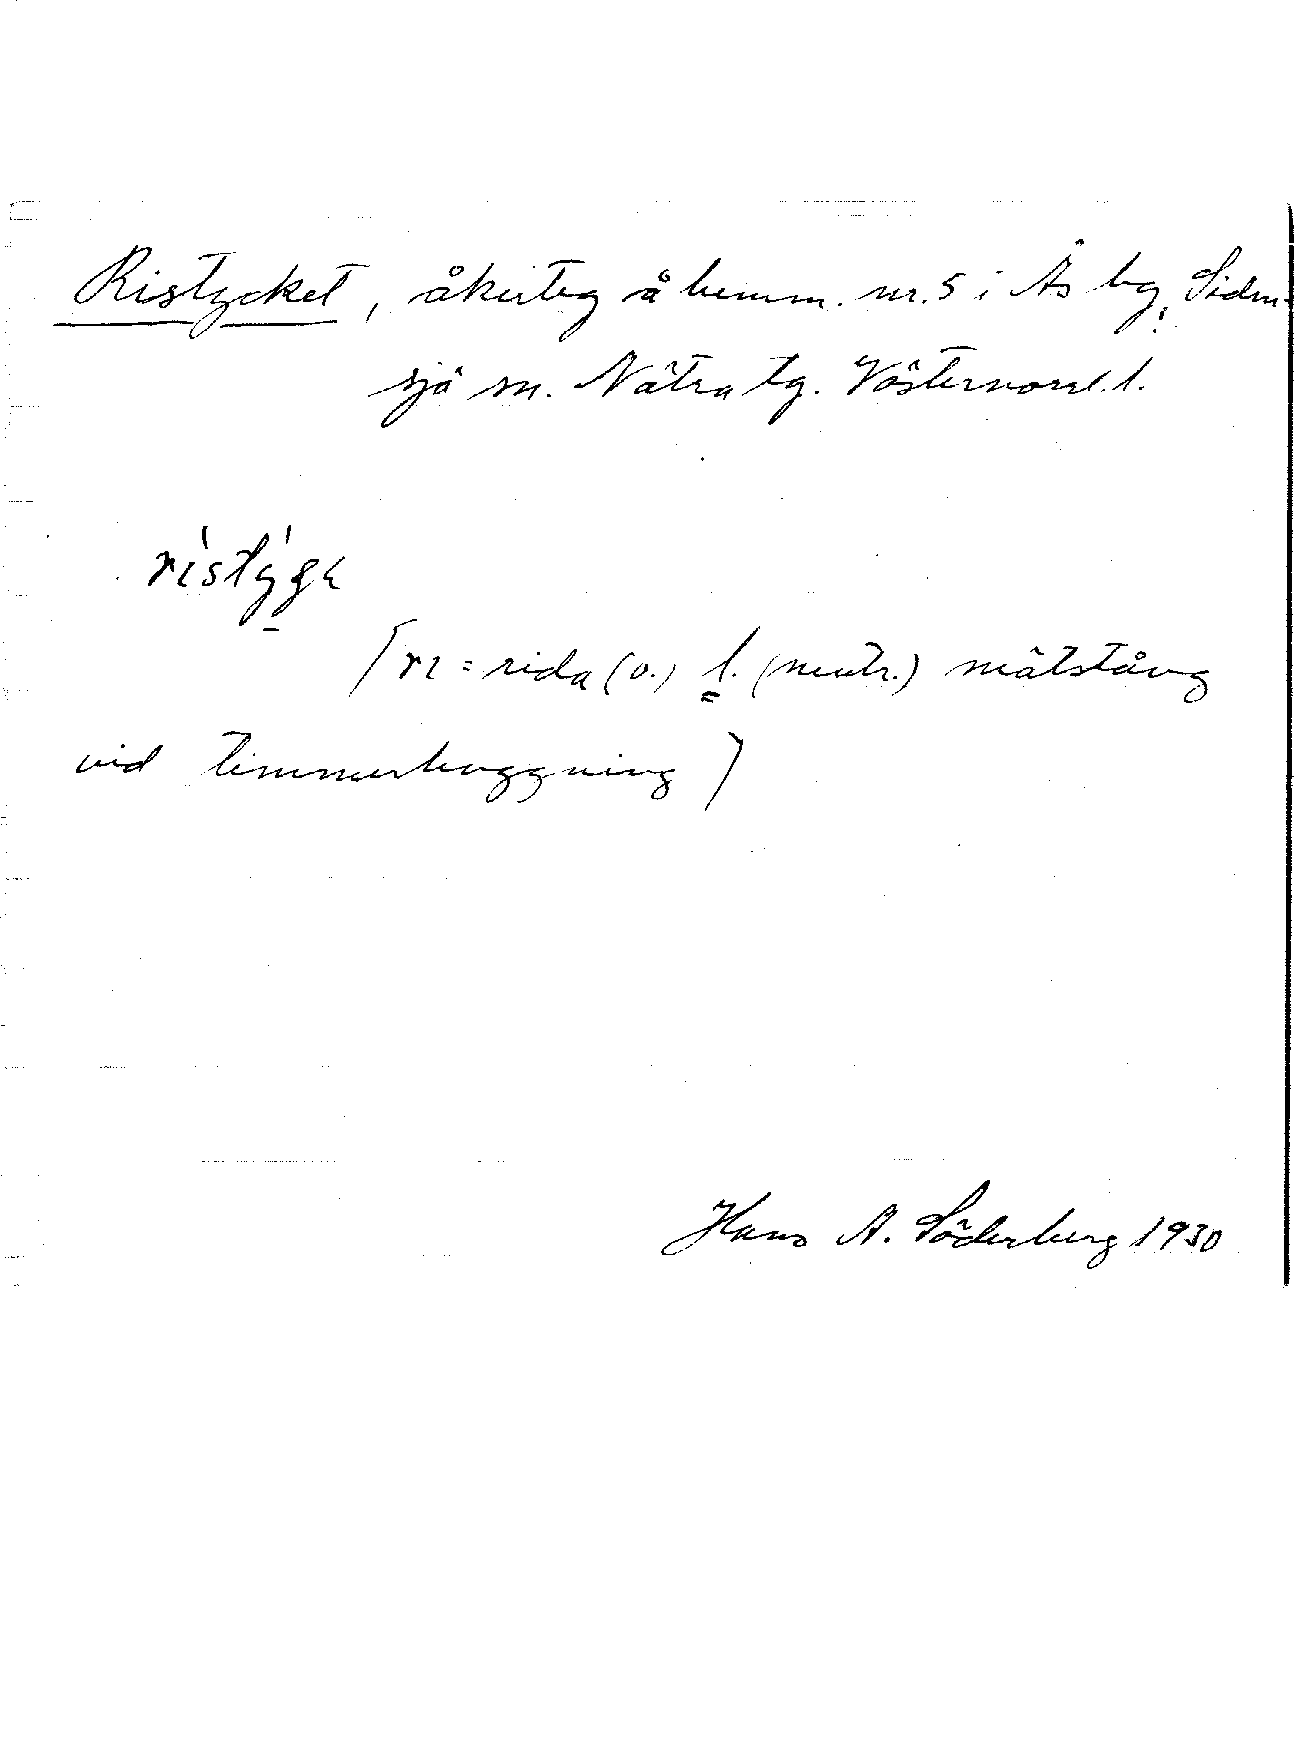 Ristycket, åkerteg å hemm. nr. 5 i Ås by, Siden-
sjö sn. Nätra tg. Västernorrl. l.
ri`sty`gɛ
[ri = rida (v.) l. (neutr.) mätstång
vid timmerhuggning]
Hans A. Söderberg 1930